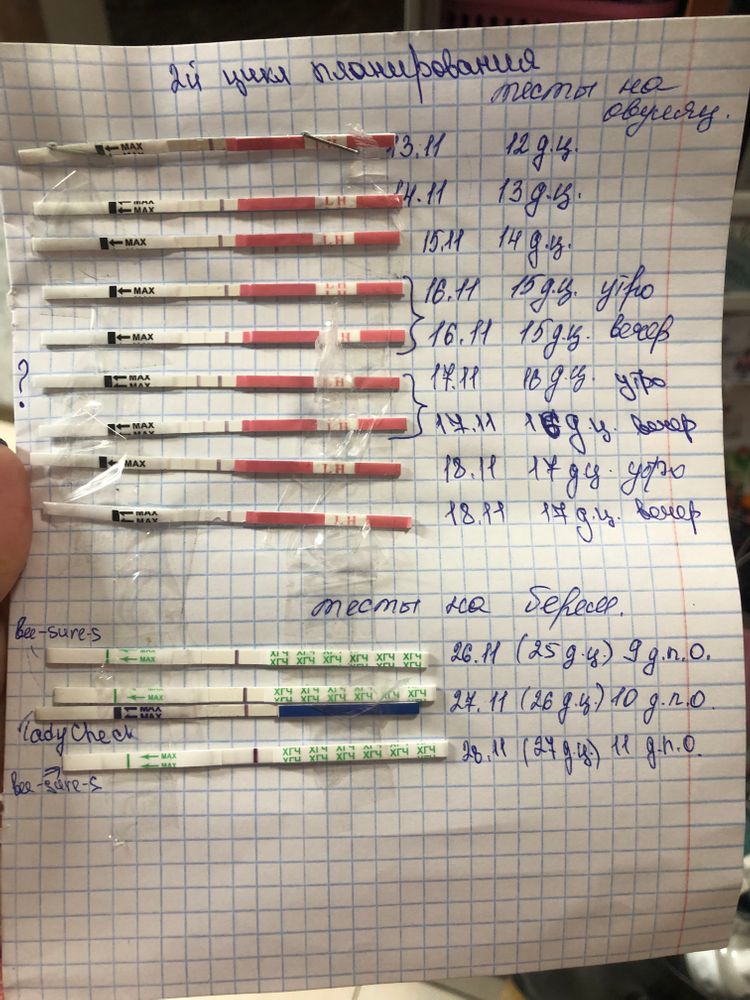 2й цикл планирования
тесты на
овуляц.
MAX 13.11 12 д.ц.
MAX MAX LH 14.11 13 д.ц.
MAX LH 15.11 14 д.ц.
MAX LH LH 16.11 15 д.ц. утро
MAX LH 16.11 15 д.ц. вечер
?
MAX MAX LH 17.11 16 д.ц. утро
MAX MAX LH 17.11 16 д.ц. вечер
MAX LH 18.11 17 д.ц. утро
MAX MAX LH 18.11 17 д.ц. вечер
тесты на берем.
Bee-sure-s
MAX ХГЧ ХГЧ ХГЧ ХГЧ ХГЧ ХГЧ 26.11 (25 д.ц.) 9 д.п.о.
ХГЧ ХГЧ ХГЧ ХГЧ ХГЧ ХГЧ
MAX ХГЧ ХГЧ ХГЧ ХГЧ ХГЧ ХГЧ 27.11 (26 д.ц) 10 д.п.о.
MAX MAX
LadyCheck
MAX ХГЧ ХГЧ ХГЧ ХГЧ ХГЧ ХГЧ 28.11 (27 д.ц) 11 д.п.о.
ХГЧ ХГЧ ХГЧ ХГЧ ХГЧ ХГЧ
Bee-sure-s